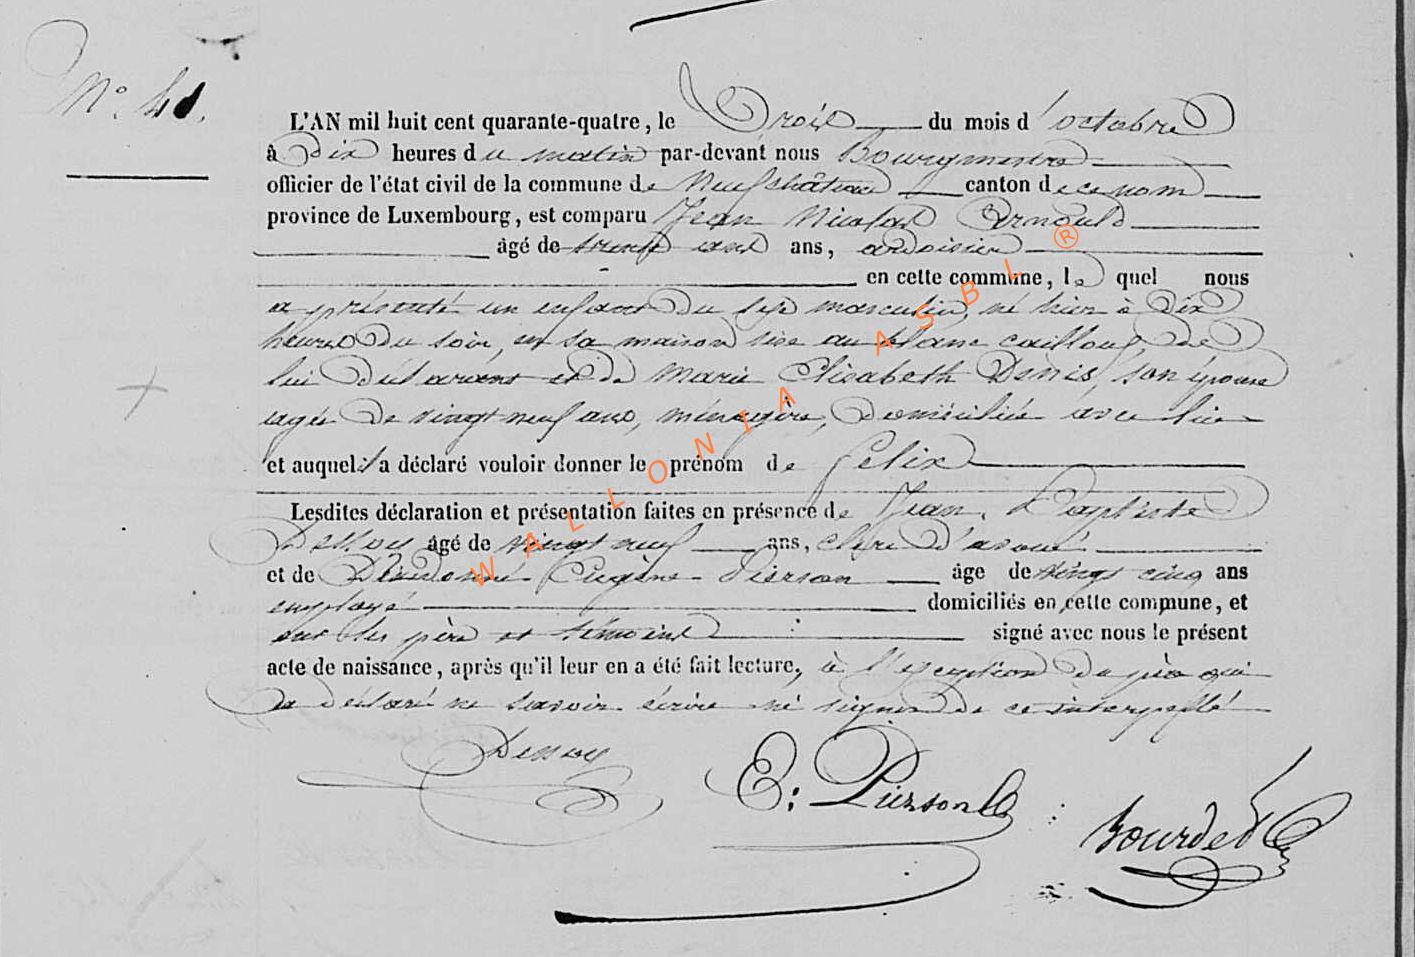 N° 41.
L'AN mil huit cent quarante-quatre, le Trois du mois d'octobre
à Dix heures du matin par-devant nous Bourgmestre
officier de l'état civil de la commune de Neufchâteau canton de ce nom
province de Luxembourg, est comparu Jean Nicolas Arnould
âgé de trente ans ans, ardoisier
en cette commune, le quel nous
a présenté un enfant du sexe masculin, né hier à Dix
heures du soir, en sa maison sise au blanc caillou, de
lui Déclarant et de Marie Elisabeth Denis, son épouse
agée de vingt neuf ans, ménagère, Domiciliée avec lui
et auquel il a déclaré vouloir donner le prénom de Felix
Lesdites déclaration et présentation faites en présence de Jean Baptiste
Dessoy âgé de vingt neuf ans, clerc d'avoué
et de Dieudonné Eugène Pierson âge de vingt cinq ans
employé domiciliés en cette commune, et
ont les père et témoins signé avec nous le présent
acte de naissance, après qu'il leur en a été fait lecture, à l'exception du père qui
a déclaré ne savoir écrire ni signer de ce interpellé
Dessoy
E: Pierson
Bourdet
WALLONIA ASBL ®